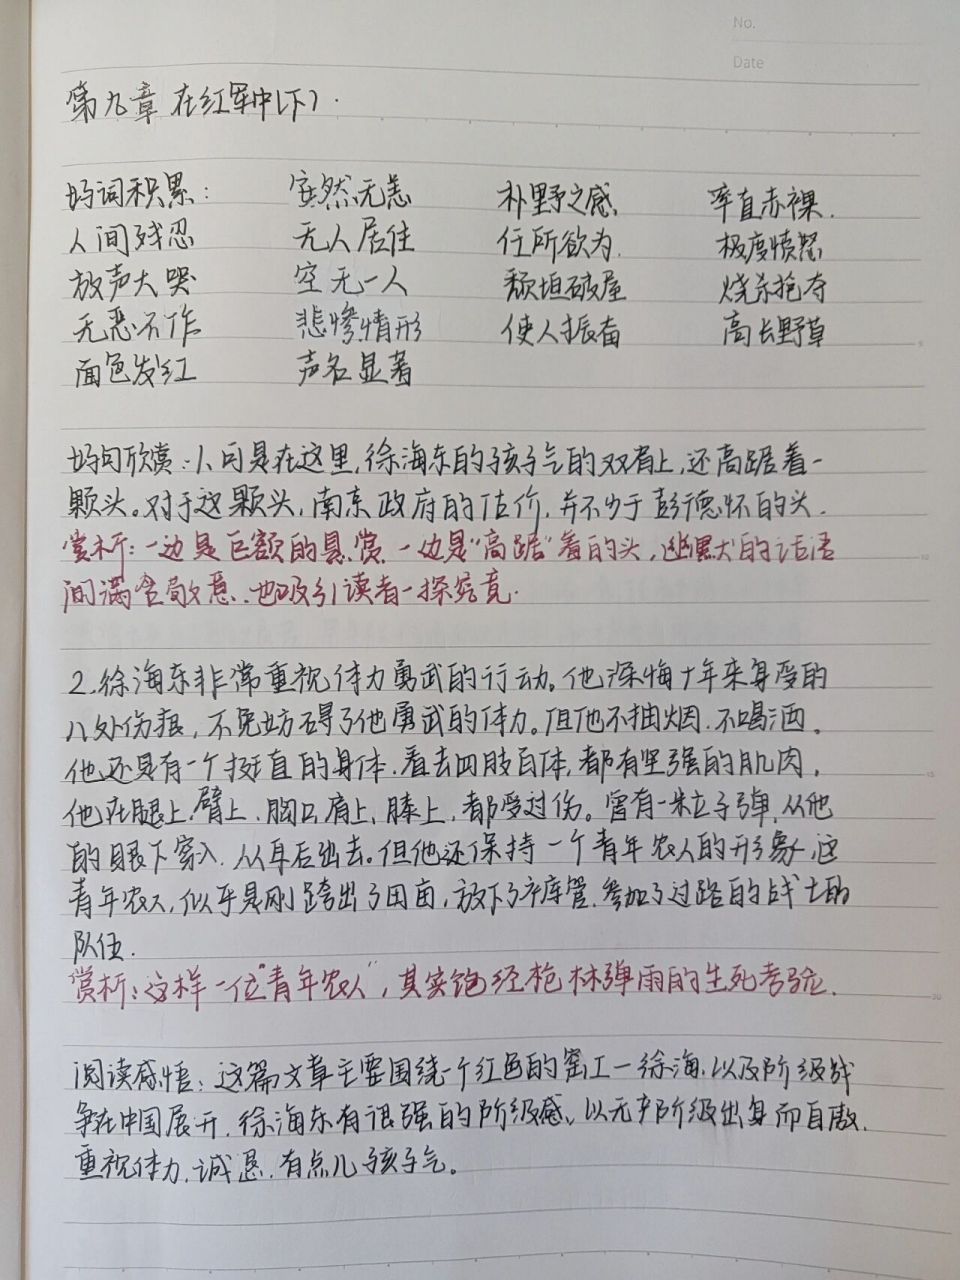 No.
Date
第九章 在红军中(下).
好词积累: 安然无恙 朴野之感 率直赤裸.
人间残忍 无人居住 任所欲为. 极度愤怒
放声大哭 空无一人 颓垣破屋 烧杀抢夺
无恶不作 悲惨情形 使人振奋 高长野草
面色发红 声名显著
好句欣赏:1.可是在这里,徐海东的孩子气的双肩上,还高踞着一
颗头。对于这颗头,南京政府的估价,并不少于彭德怀的头.
赏析:一边是巨额的悬赏.一边是"高踞"着的头,幽默的话语
间满含敬意.也吸引读者一探究竟.
2.徐海东非常重视体力勇武的行动。他深悔十年来身受的
八处伤痕,不免妨碍了他勇武的体力。但他不抽烟.不喝酒。
他还是有一个挺直的身体.看去四肢百体,都有坚强的肌肉,
他在腿上.臂上.胸口肩上,膝上,都受过伤。曾有一粒子弹,从他
的眼下穿入.从耳后出去。但他还保持一个青年农人的形象,这
青年农人,似乎是刚跨出了田亩,放下了库管.参加了过路的战士的
队伍.
赏析:这样一位"青年农人",其实饱经枪林弹雨的生死考验.
阅读感悟:这篇文章主要围绕一个红色的窑工一徐海.以及阶级战
争在中国展开.徐海东有很强的阶级感、以无产阶级出身而自傲.
重视体力.诚恳.有点儿孩子气。